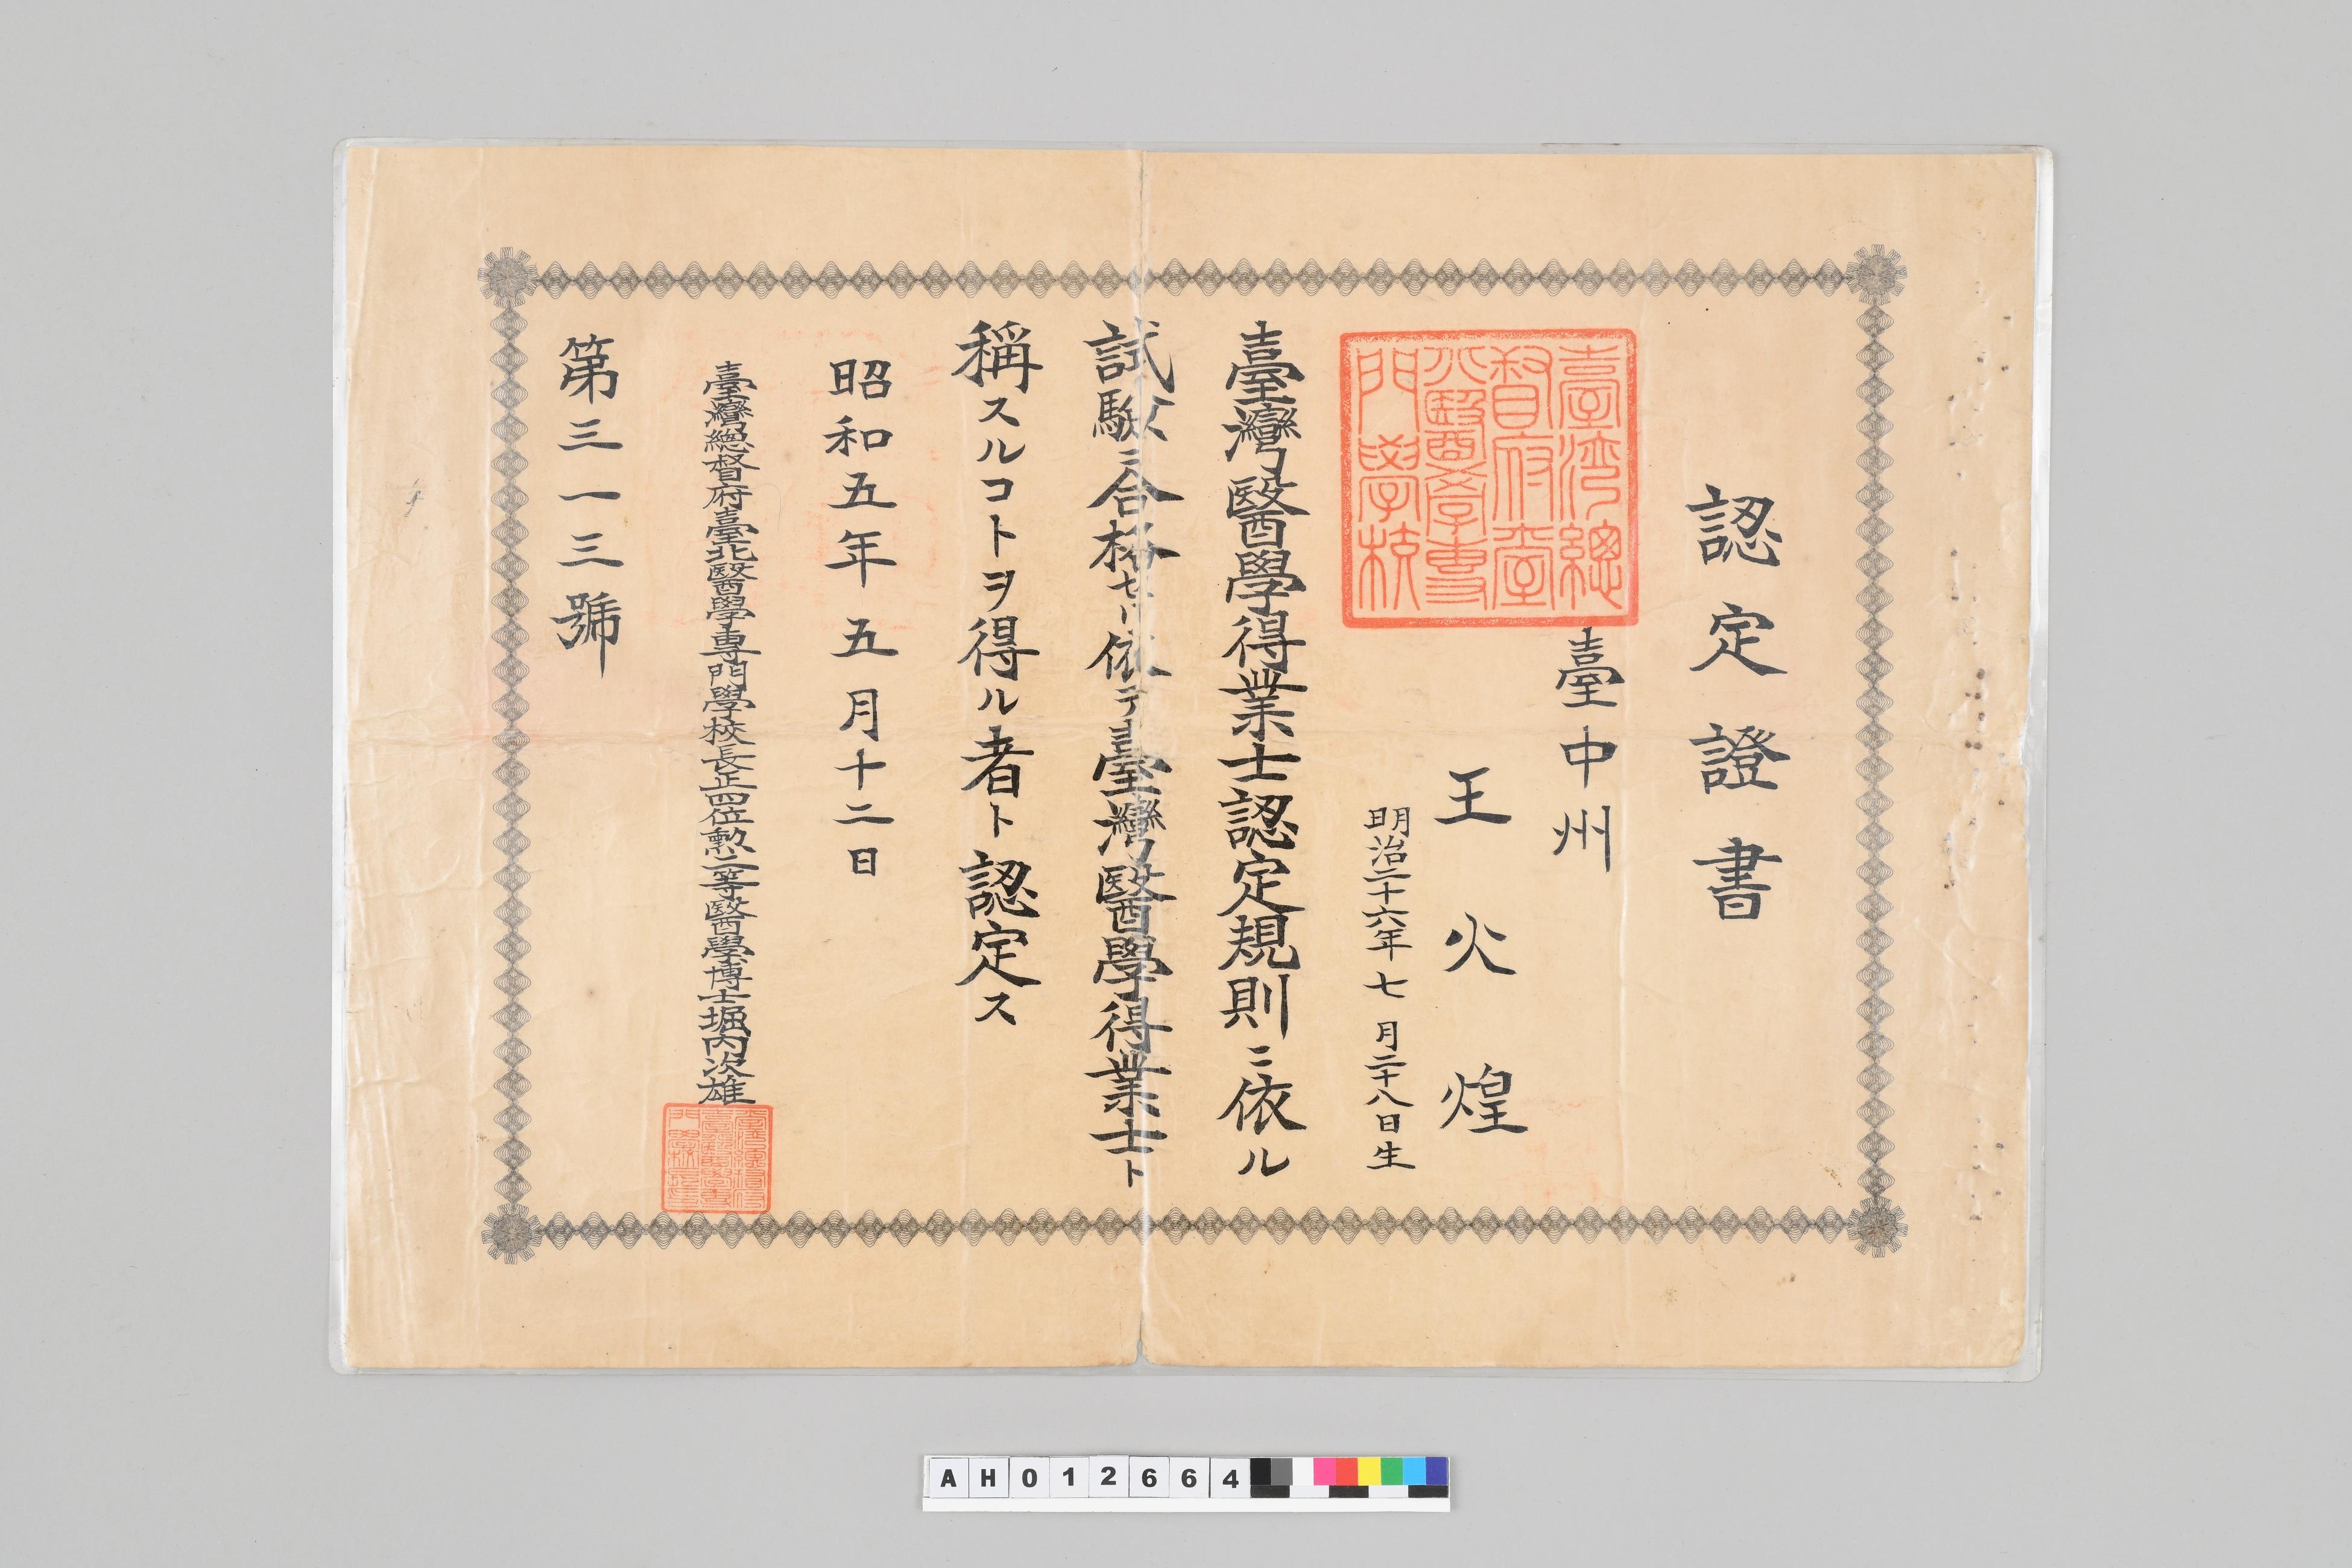 認定證書
臺灣總
督府臺
北醫學專
門學校
臺中州
王火煌
明治二十六年七月二十八日生
臺灣醫學得業士認定規則ニ依ル
試驗ニ合格セルニ依テ臺灣醫學得業士ト
稱スルコトヲ得ル者ト認定ス
昭和五年五月十二日
臺灣總督府臺北醫學專門學校長正四位勲二等醫學博士堀内次雄
第三一三號
AH012664